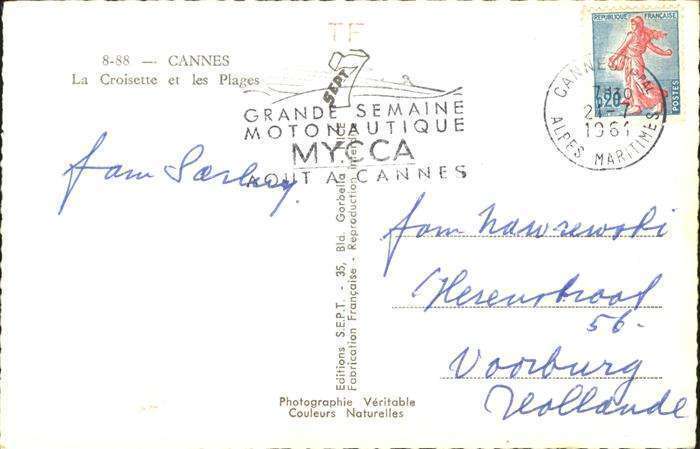 8-88 — CANNES
La Croisette et les Plages
TF
7
SEPT
GRANDE SEMAINE
MOTONAUTIQUE
MYCCA
AOUT A CANNES
REPUBLIQUE FRANÇAISE
0,20
POSTES
CANNES PPAL
1961
ALPES MARITIMES
fam
fam Nawrewski
Herenstraat
56-
Voorburg
Hollande
Editions S.E.P.T. - 35, Bld. Gorbella
Fabrication Française - Reproduction
Photographie Véritable
Couleurs Naturelles